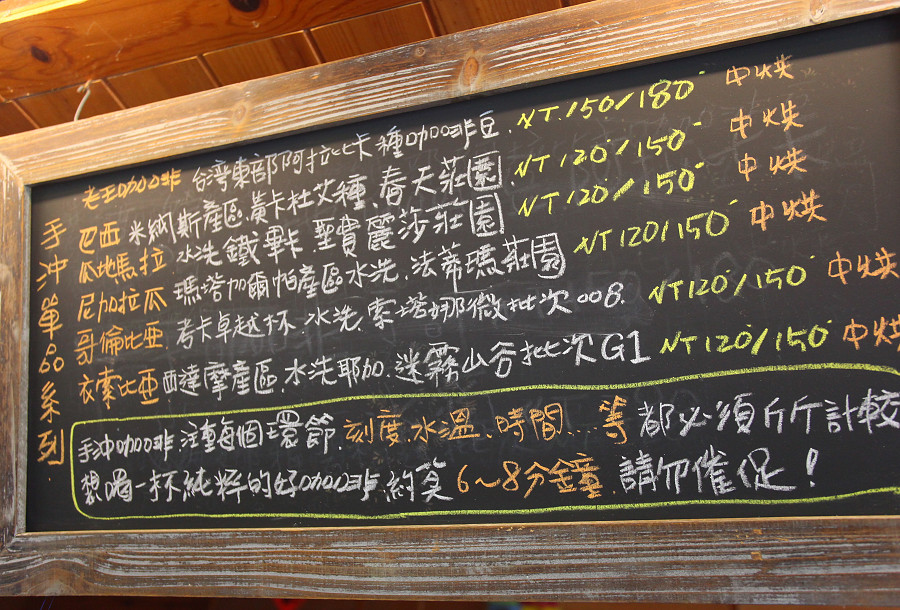 手沖單品系列
老王咖啡 台灣東部阿拉比卡種咖啡豆. NT.150/180 中烘
巴西 米納斯產區.黃卡杜艾種.春天莊園 NT120/150 中烘
瓜地馬拉 水洗.鐵畢卡 聖費麗莎莊園 NT120/150 中烘
尼加拉瓜 瑪塔加爾帕產區水洗.法蒂瑪莊園 NT120/150 中烘
哥倫比亞 考卡卓越杯.水洗.索塔娜微批次008. NT120/150 中烘
衣索比亞 西達摩產區.水洗耶加.迷霧山谷批次G1 NT120/150 中烘
手沖咖啡.注重每個環節.刻度.水溫、時間...等 都必須斤斤計較
想喝一杯純粹的好咖啡.約莫6~8分鐘.請勿催促!